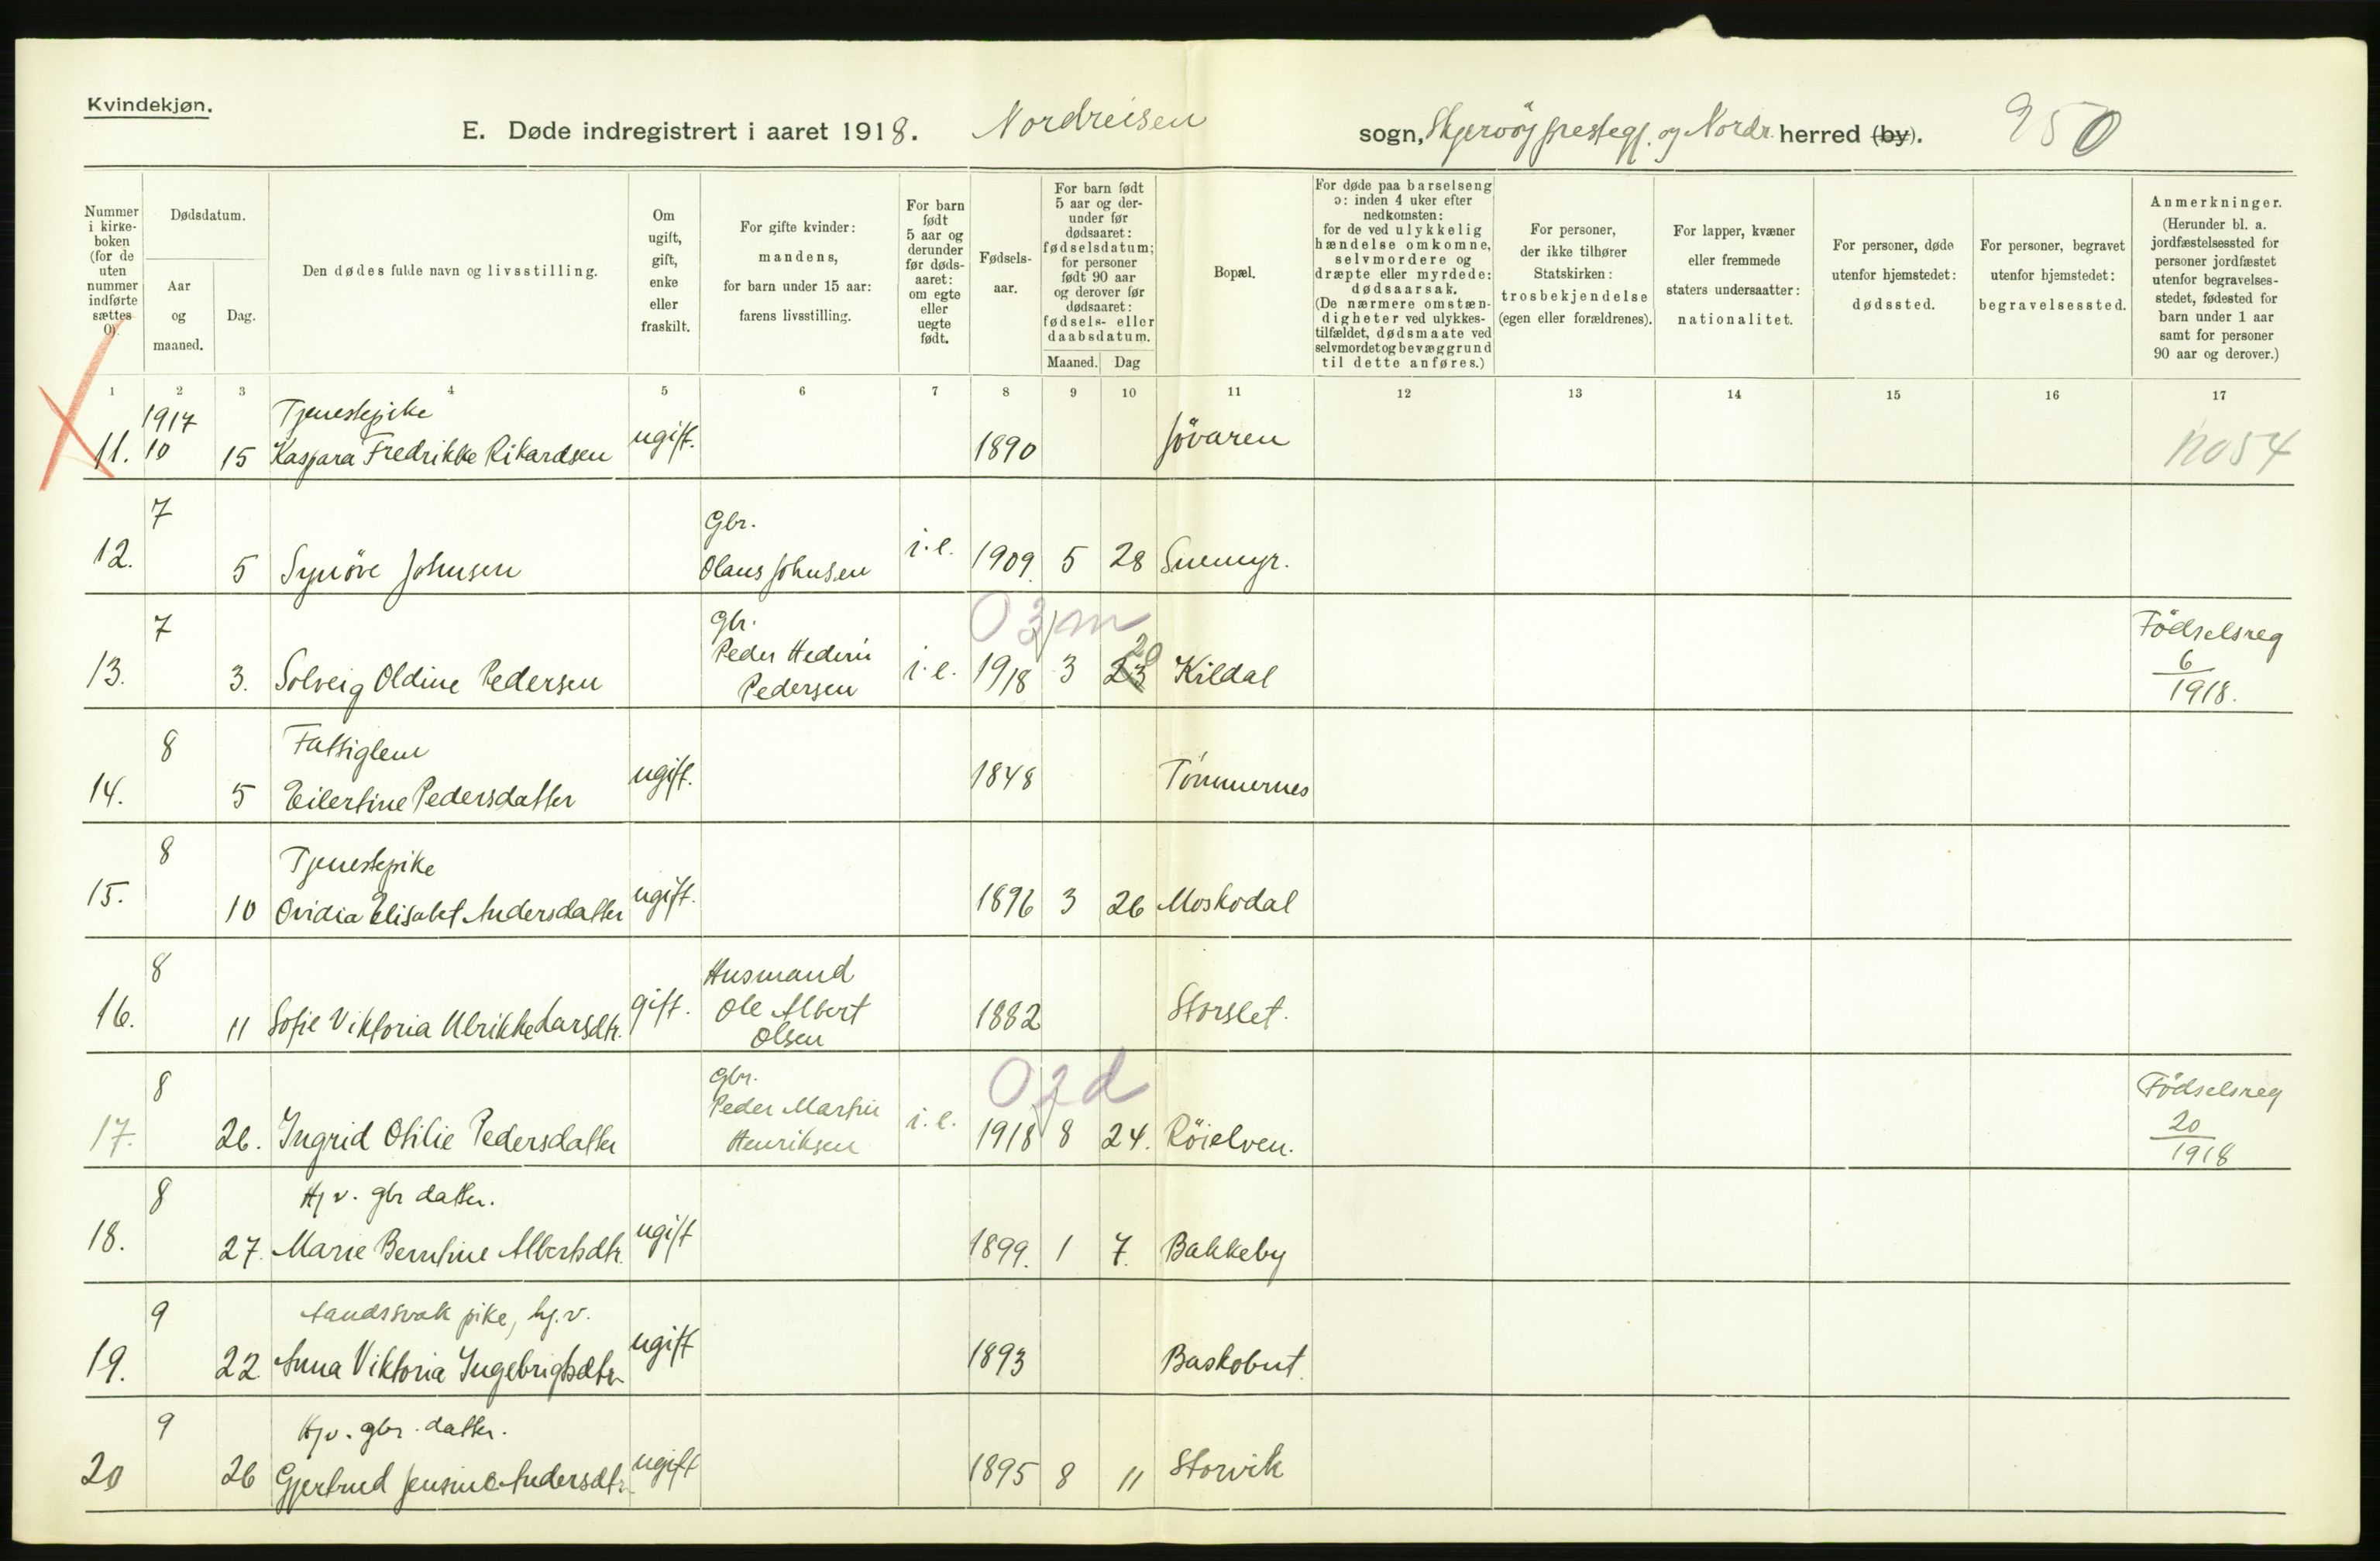 Kvindekjøn.
E. Døde indregistrert i aaret 1918. Nordreisen sogn, Skjervøy prestegj. og Nordr. herred (by). 950
Nummer i kirke-boken (for de uten nummer indførte sættes 0).
Dødsdatum.
Aar og maaned.
Dag.
Den dødes fulde navn og livsstilling.
Om ugift, gift, enke eller fraskilt.
For gifte kvinder: mandens, for barn under 15 aar: farens livsstilling.
For barn født 5 aar og derunder før døds-aaret: om egte eller uegte født.
Fødsels-aar.
For barn født 5 aar og der-under før dødsaaret: fødselsdatum; for personer født 90 aar og derover før dødsaaret: fødsels- eller daabsdatum.
Maaned. Dag
Bopæl.
For døde paa barselseng ɔ: inden 4 uker efter nedkomsten: for de ved ulykkelig hændelse omkomne, selvmordere og dræpte eller myrdede: dødsaarsak. (De nærmere omstæn-digheter ved ulykkes-tilfældet, dødsmaate ved selvmordet og bevæggrund til dette anføres.)
For personer, der ikke tilhører Statskirken: trosbekjendelse (egen eller forældrenes).
For lapper, kvæner eller fremmede staters undersaatter: nationalitet.
For personer, døde utenfor hjemstedet: dødssted.
For personer, begravet utenfor hjemstedet: begravelsessted.
Anmerkninger. (Herunder bl. a. jordfæstelsessted for personer jordfæstet utenfor begravelses-stedet, fødested for barn under 1 aar samt for personer 90 aar og derover.)
1 2 3 4 5 6 7 8 9 10 11 12 13 14 15 16 17
1917 Tjenestepike
11. 10 15 Kaspara Fredrikke Rikardsen ugift. 1890 Jövaren no 54
7 Gbr.
12. 5 Synöve Johnsen Olaus Johnsen i.e. 1909. 5 28 Snemyr.
0 3 m
7 Gbr. 20 Födselsreg
13. 3. Solveig Oldine Pedersen Peder Hedevin Pedersen i.e. 1918 3 23 Kildal 6/1918.
8 Fattiglem
14. 5 Eilertine Pedersdatter ugift. 1848 Tömmernes
8 Tjenestepike
15. 10 Ovidia Elisabet Andersdatter ugift. 1896 3 26 Moskodal
8 Husmand
16. 11 Sofie Viktoria Ulrikke Larsdtr. gift. Ole Albert Olsen 1882 Storslet.
0 2 d
8 Gbr. Födselsreg
17. 26. Ingrid Otilie Pedersdatter Peder Martin Henriksen i.e. 1918 8 24. Röielven. 20/1918
8 Hj v. gbr datter.
18. 27. Marie Berntine Albertsdtr. ugift 1899. 1 7. Bakkeby
9 Aandssvak pike, hj.v.
19. 22. Anna Viktoria Ingebrigtsdtr ugift 1893 Baskobut.
9 Hjv. gbr. datter.
20 26 Gjertrud Jensine Andersdtr. ugift 1895 8 11 Storvik